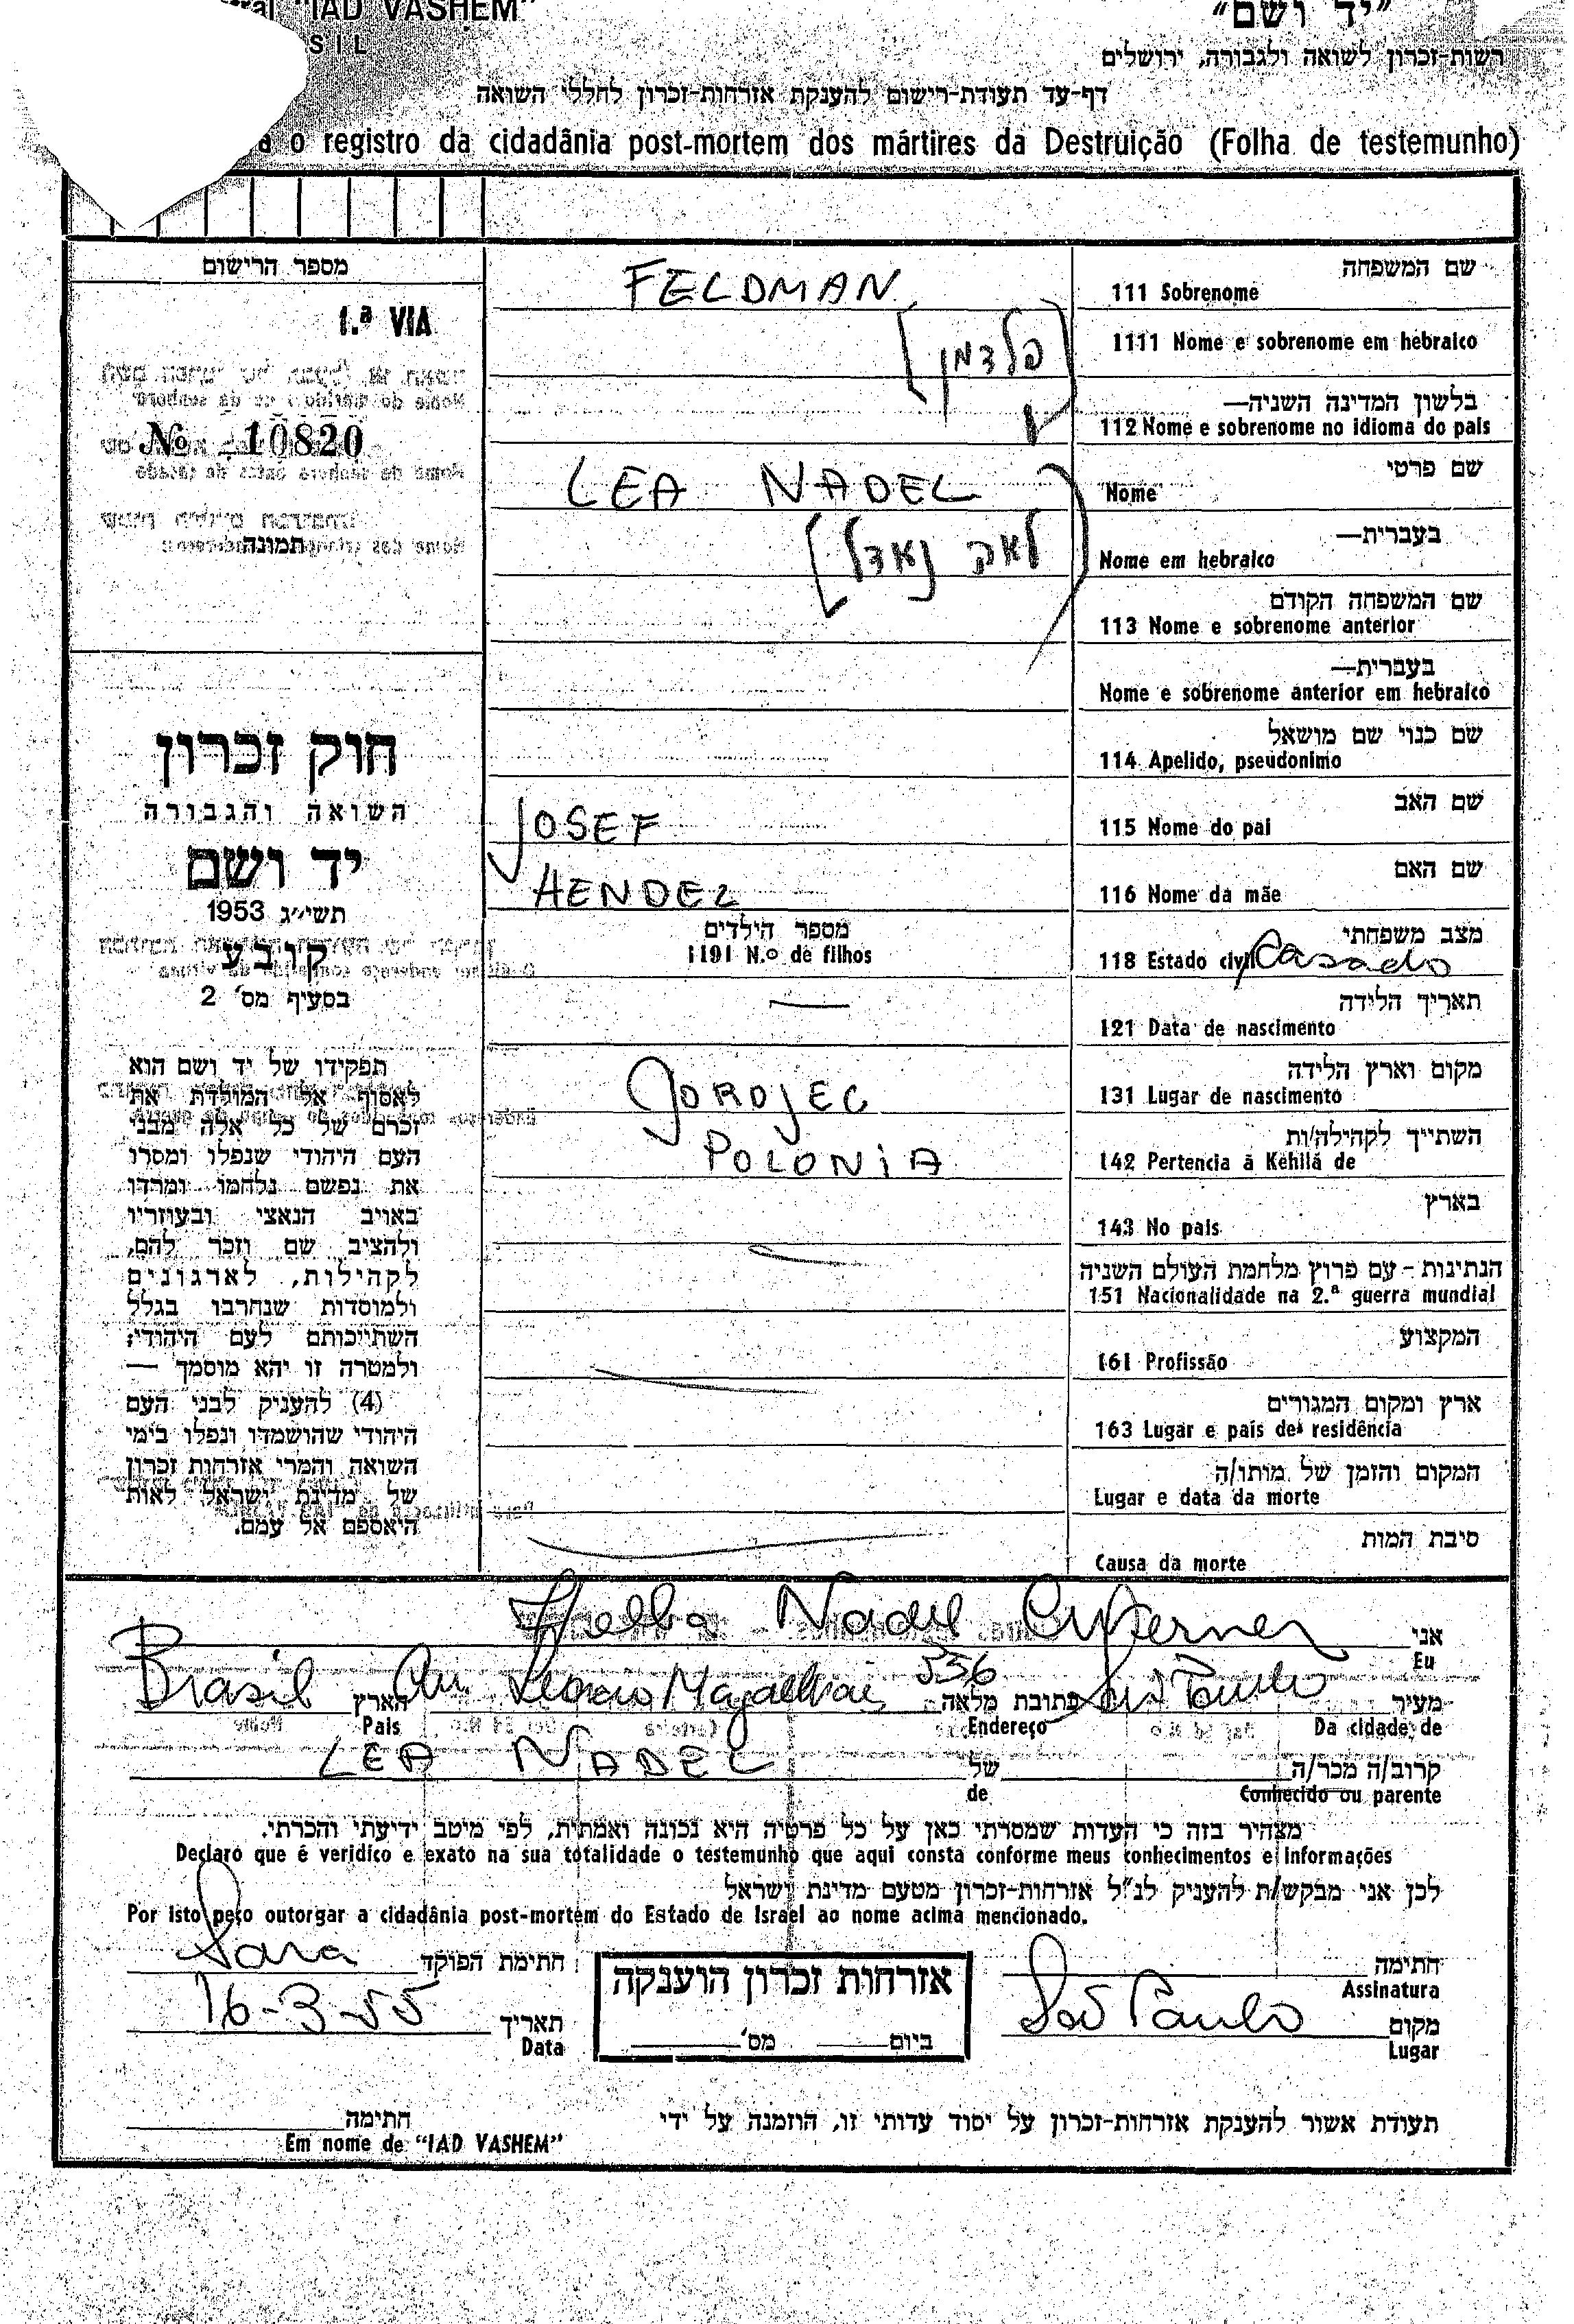 "IAD VASHEM"
SIL
"יד ושם"
רשות-זכרון לשואה ולגבורה, ירושלים
דף-עד תעודת-רישום להענקת אזרחות-זכרון לחללי השואה
o registro da cidadânia post-mortem dos mártires da Destruição (Folha de testemunho)
שם המשפחה
111 Sobrenome
FELDMAN
1111 Nome e sobrenome em hebraico
[פלדמן]
בלשון המדינה השניה—
112 Nome e sobrenome no idioma do pais
שם פרטי
Nome
LEA NADEL
בעברית—
Nome em hebraico
[לאה נאדל]
שם המשפחה הקודם
113 Nome e sobrenome anterior
בעברית—
Nome e sobrenome anterior em hebraico
שם כנוי שם מושאל
114 Apelido, pseudonimo
שם האב
115 Nome do pai
JOSEF
שם האם
116 Nome da mãe
HENDEL
מצב משפחתי
118 Estado civil Casado
מספר הילדים
1191 N.º de filhos
תאריך הלידה
121 Data de nascimento
מקום וארץ הלידה
131 Lugar de nascimento
GOROJEC
השתייך לקהילה/ות
142 Pertencia à Kehilá de
POLONIA
בארץ
143 No pais
הנתינות - עם פרוץ מלחמת העולם השניה
151 Nacionalidade na 2.ª guerra mundial
המקצוע
161 Profissão
ארץ ומקום המגורים
163 Lugar e pais de residência
המקום והזמן של מותו/ה
Lugar e data da morte
סיבת המות
Causa da morte
מספר הרישום
1.ª VIA
Nº 10820
תמונה
חוק זכרון
השואה והגבורה
יד ושם
תשי"ג 1953
קובע
בסעיף מס' 2
תפקידו של יד ושם הוא
לאסוף אל המולדת את
זכרם של כל אלה מבני
העם היהודי שנפלו ומסרו
את נפשם נלחמו ומרדו
באויב הנאצי ובעוזריו
ולהציב שם וזכר להם,
לקהילות, לארגונים
ולמוסדות שנחרבו בגלל
השתייכותם לעם היהודי;
ולמטרה זו יהא מוסמך —
(4) להעניק לבני העם
היהודי שהושמדו ונפלו בימי
השואה והמרי אזרחות זכרון
של מדינת ישראל לאות
היאספם אל עמם.
אני
Eu
Nadel
מעיר
Da cidade de
São Paulo
כתובת מלאה
Endereço
Av. Leoncio Magalhães 556
הארץ
Pais
Brasil
קרוב/ה מכר/ה
Conhecido ou parente
של
de
LEA NADEL
מצהיר בזה כי העדות שמסרתי כאן על כל פרטיה היא נכונה ואמתית, לפי מיטב ידיעתי והכרתי.
Declaro que é veridico e exato na sua totalidade o testemunho que aqui consta conforme meus conhecimentos e informações
לכן אני מבקש/ת להעניק לנ"ל אזרחות-זכרון מטעם מדינת ישראל
Por isto peço outorgar a cidadânia post-mortem do Estado de Israel ao nome acima mencionado.
חתימה
Assinatura
חתימת הפוקד
Sara
מקום
Lugar
São Paulo
תאריך
Data
16-3-55
אזרחות זכרון הוענקה
ביום מס'
תעודת אשור להענקת אזרחות-זכרון על יסוד עדותי זו, הוזמנה על ידי
חתימה
Em nome de "IAD VASHEM"